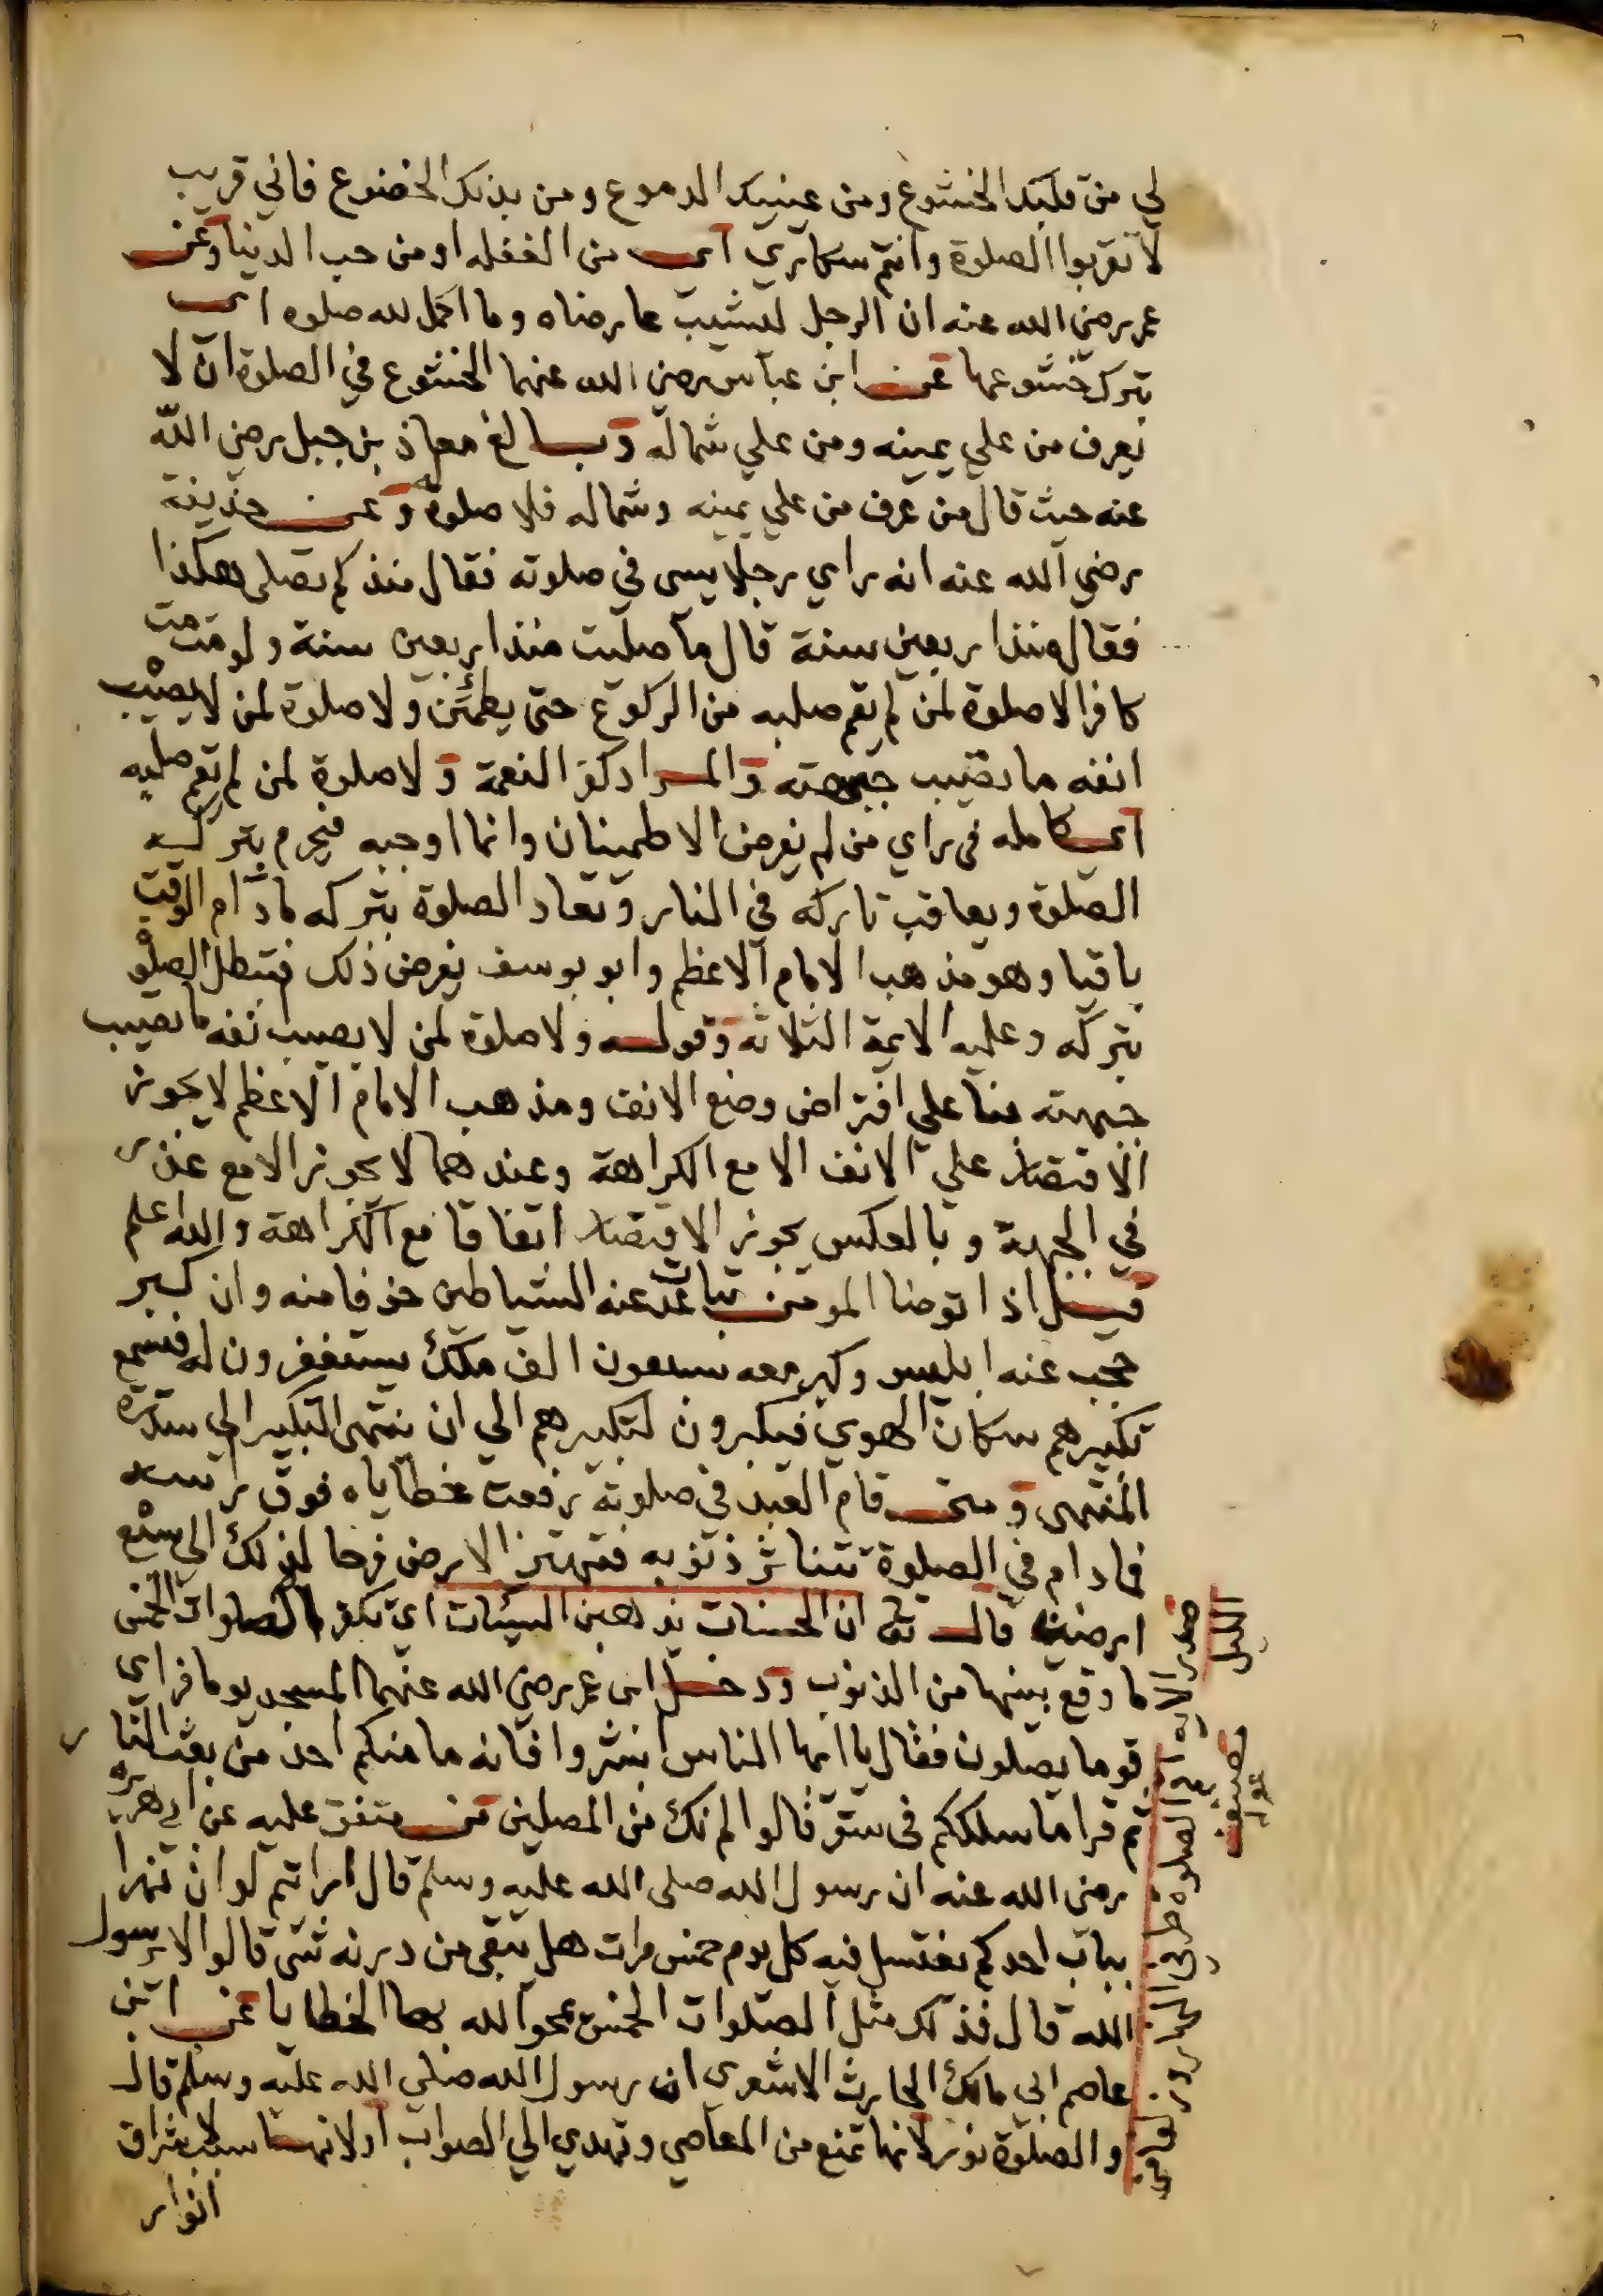 لي من قلبك الخشوع ومن عينيك الدموع ومن بدنك الخضوع فاني قريب
لا تقربوا الصلوة وانتم سكارى اى من الغفله او من حب الدنيا وعن
عمر رضى الله عنه ان الرجل ليشيب عارضاه وما اكمل لله صلوه اى
بترك خشوعها عن ابن عباس رضى الله عنهما الخشوع في الصلوة ان لا
يعرف من علي يمينه ومن علي شماله وبالغ معاذ بن جبل رضى الله
عنه حيث قال من عرف من علي يمينه وشماله فلا صلوة له وعن حذيفة
رضي الله عنه انه راي رجلا يسى في صلوته فقال منذ كم تصلى هكذا
فقال منذ اربعين سنة قال ما صليت منذ اربعين سنة ولو مت مت
كافرا لا صلوة لمن لم يقم صلبه من الركوع حتى يطمئن ولا صلوة لمن لا يصيب
انفه ما تصيب جبهته والمراد كفر النعمة ولا صلوة لمن لم يقم صلبه
اى كامله فى راي من لم يفرض الاطمينان وانما اوجبه فيحرم بتركه
الصلوة ويعاقب تاركه في النار وتعاد الصلوة بتركه مادام الوقت
باقيا وهو مذهب الامام الاعظم وابو يوسف يفرض ذلك فتبطل الصلوة
بتركه وعليه الايمة الثلاثه وقوله ولا صلوة لمن لا يصيب انفه ما تصيب
جبهته بنا علي افتراض وضع الانف ومذهب الامام الاعظم لا يجوز
الاقتصار علي الانف الا مع الكراهة وعندهما لا يجوز الا مع عذر
في الجبهة وبالعكس يجوز الاقتصار اتفاقا مع الكراهة والله اعلم
قيل اذا توضا المومن تباعدت عنه الشياطين خوفا منه وان كبر
حجب عنه ابليس وكبر معه سبعون الف ملك يستغفرون له فتسمع
تكبيرهم سكان الهوي فيكبرون لتكبيرهم الي ان ينتهى التكبير الي سدرة
المنتهى ومتى قام العبد في صلوته رفعت خطاياه فوق راسه
فمادام في الصلوة تتناثر ذنوبه فتهتز الارض فرحا لذلك الي سبع
ارضين قال تعالى ان الحسنات يذهبن السيئات اى تكفر الصلوات الخمس
ما وقع بينها من الذنوب ودخل ابن عمر رضى الله عنهما المسجد يوما فراى
قوما يصلون فقال يا ايها الناس ابشروا فانه ما منكم احد من بعث النار
ثم قرا ما سلككم فى سقر قالوا لم نك من المصلين متفق عليه عن ابي هريرة
رضى الله عنه ان رسول الله صلى الله عليه وسلم قال ارايتم لو ان نهرا
بباب احدكم يغتسل فيه كل يوم خمس مرات هل يبقى من درنه شى قالوا لا يرسول
الله قال فذلك مثل الصلوات الخمس يمحو الله بها الخطايا عن ابن
عاصم ابي مالك الحارث الاشعري ان رسول الله صلي الله عليه وسلم قال
والصلوة نور لانها تمنع من المعاصي وتهدي الي الصواب او لانها سبب لاشراق
انوار
صدر الايه اقم الصلوة طرفي النهار وزلفا من
الليل